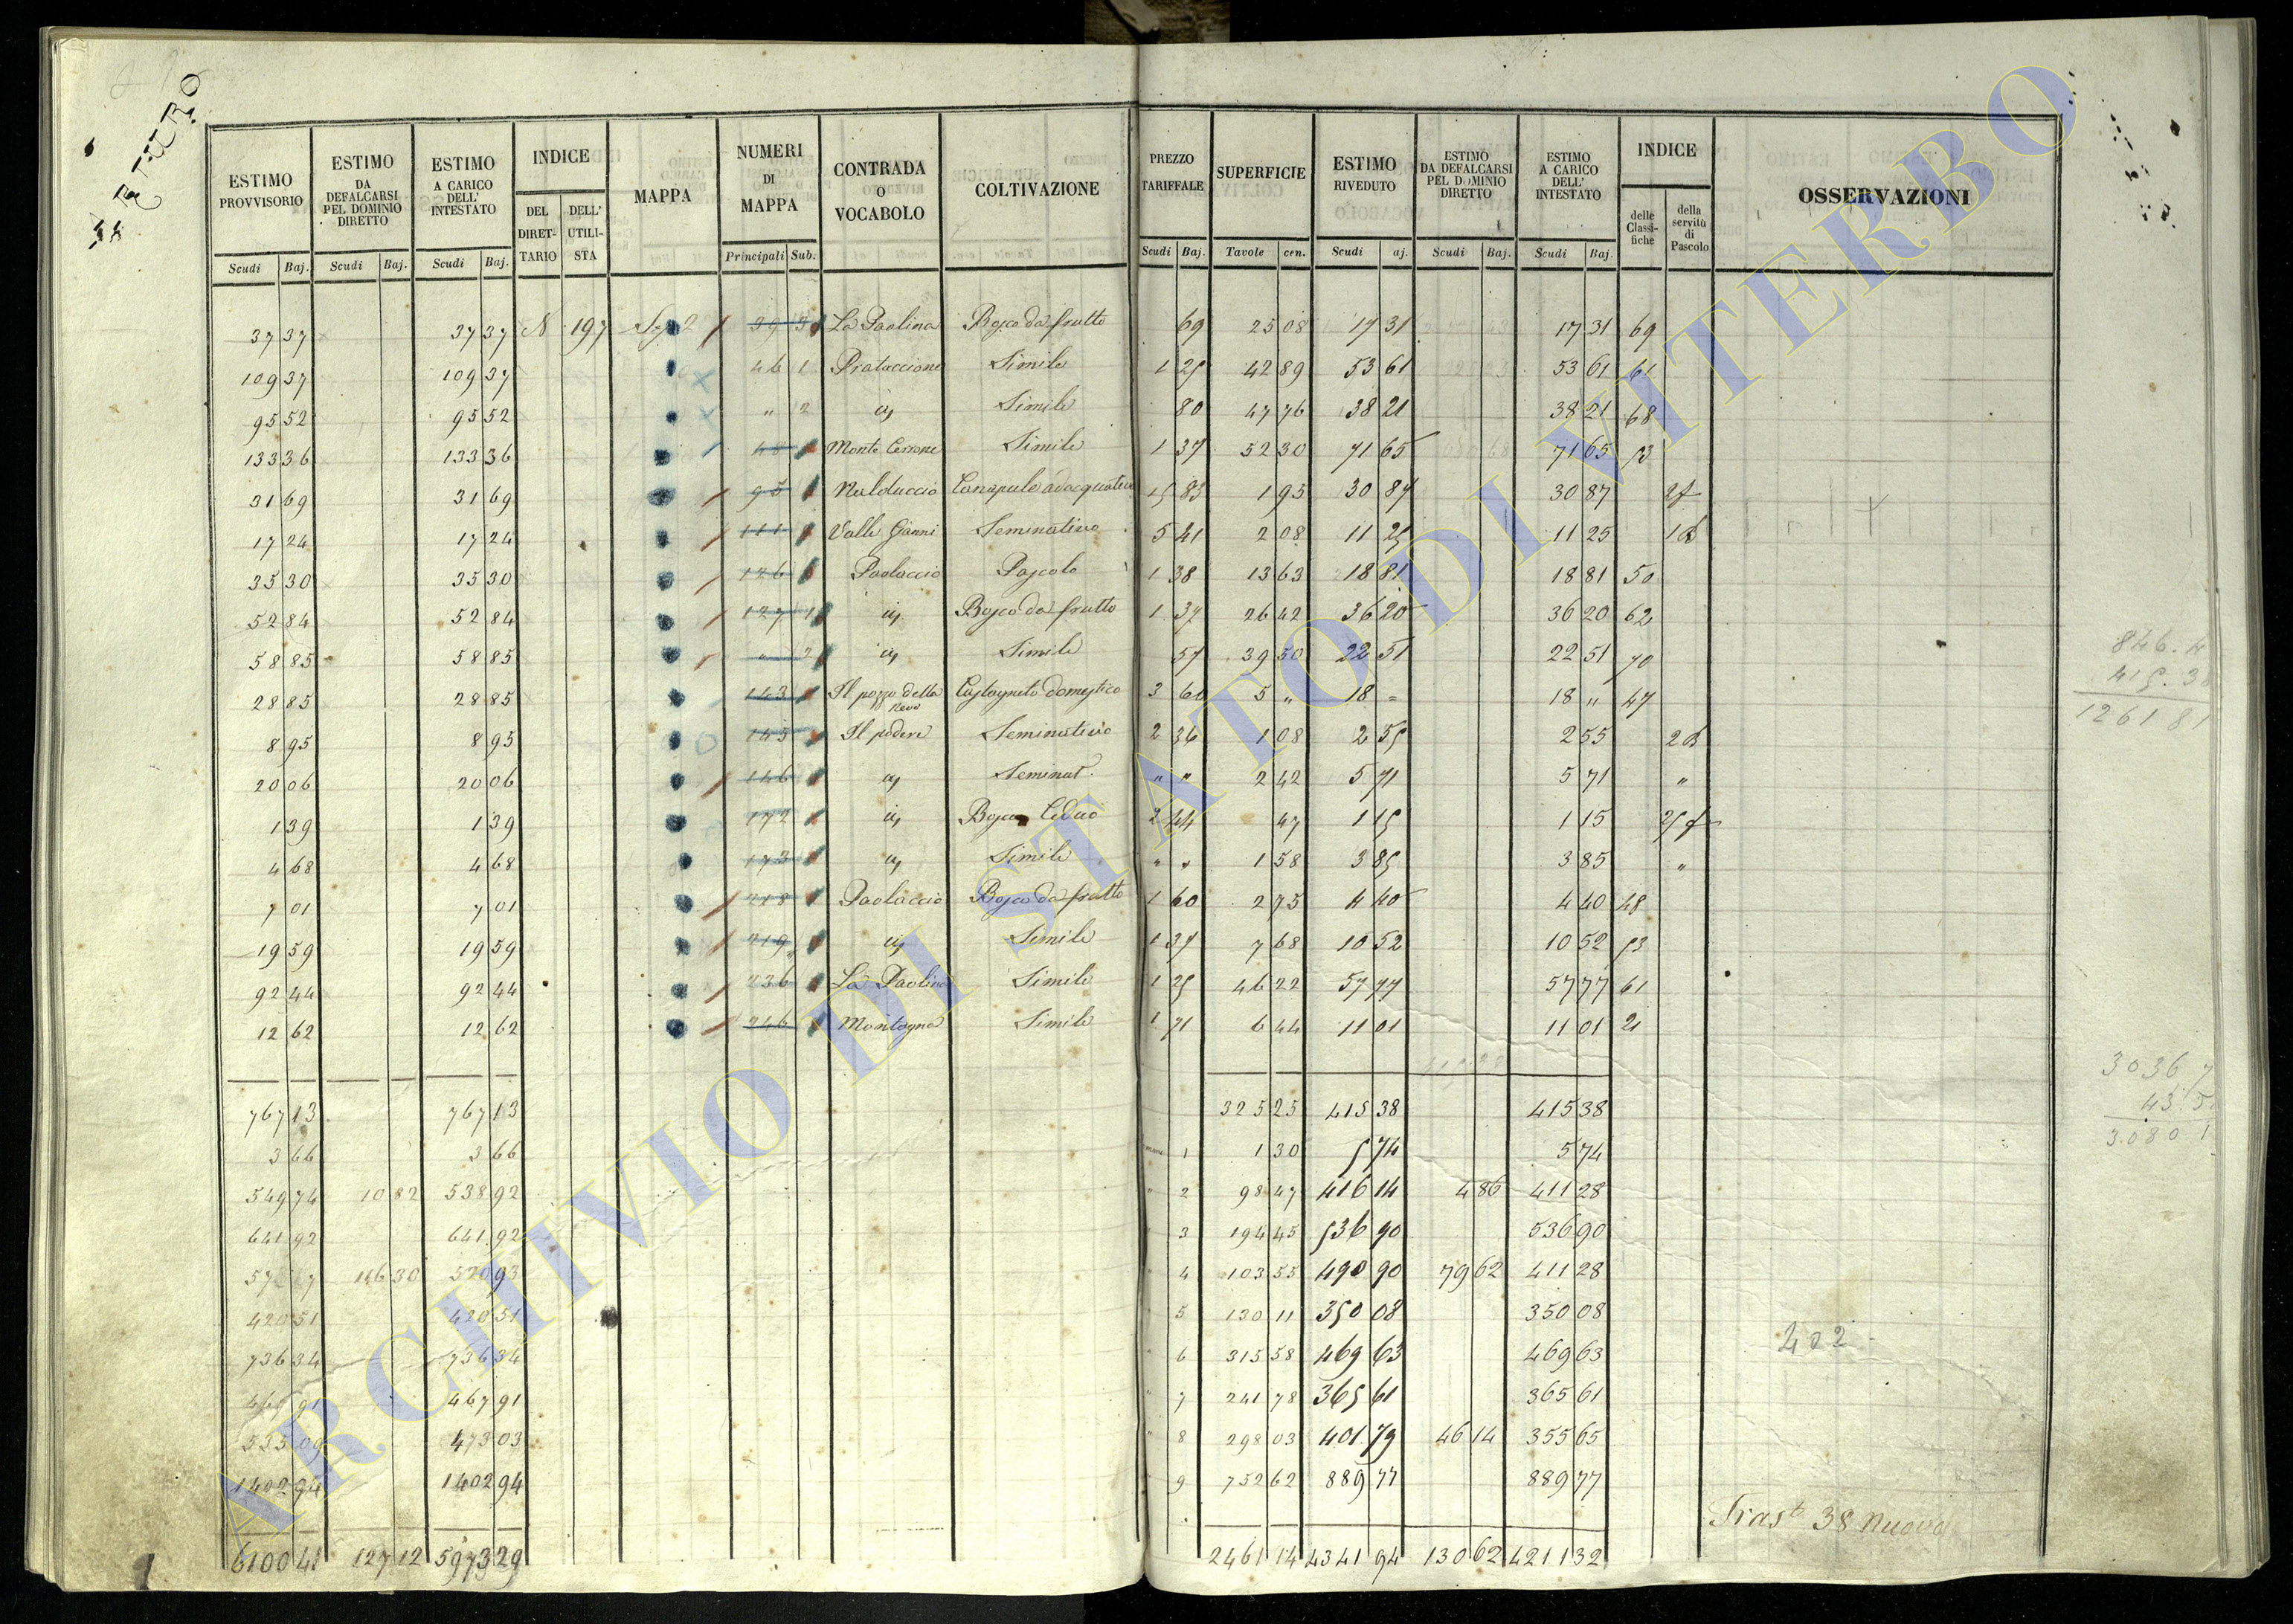 ESTIMO PROVVISORIO | ESTIMO DA DEFALCARSI PEL DOMINIO DIRETTO | ESTIMO A CARICO DELL' INTESTATO | INDICE | MAPPA | NUMERI DI MAPPA | CONTRADA O VOCABOLO | COLTIVAZIONE | PREZZO TARIFFALE | SUPERFICIE | ESTIMO RIVEDUTO | ESTIMO DA DEFALCARSI PEL DOMINIO DIRETTO | ESTIMO A CARICO DELL' INTESTATO | INDICE | OSSERVAZIONI
DEL DIRETTARIO | DELL' UTILISTA | delle Classifiche | della servitù di Pascolo
Scudi | Baj. | Scudi | Baj. | Scudi | Baj. | Principali | Sub. | Scudi | Baj. | Tavole | cen. | Scudi | aj. | Scudi | Baj. | Scudi | Baj.
37 37 | 37 37 | N 197 | 2 | 39 3 | La Paolina | Bosco da frutto | 69 | 25 08 | 17 31 | 17 31 | 69
109 37 | 109 37 | 46 1 | Prataccione | Simile | 1 25 | 42 89 | 53 61 | 53 61 | 61
95 52 | 95 52 | " 2 | iv | Simile | 80 | 47 76 | 38 21 | 38 21 | 68
133 36 | 133 36 | 48 | Monte Cerrone | Simile | 1 37 | 52 30 | 71 65 | 71 65 | 53
31 69 | 31 69 | 95 | Nalduccio | Canapule adacquativo | 15 83 | 1 95 | 30 87 | 30 87
17 24 | 17 24 | 111 | Valle Gianni | Seminativo | 5 41 | 2 08 | 11 25 | 11 25
35 30 | 35 30 | 126 | Paolaccio | Pascolo | 1 38 | 13 63 | 18 81 | 18 81 | 50
52 84 | 52 84 | 127 1 | iv | Bosco da frutto | 1 37 | 26 42 | 36 20 | 36 20 | 62
58 85 | 58 85 | " 2 | iv | Simile | 57 | 39 50 | 22 51 | 22 51 | 70
28 85 | 28 85 | 143 | Il pozzo della Neve | Castagneto domestico | 3 60 | 5 " | 18 = | 18 " | 47
8 95 | 8 95 | 145 | Il podere | Seminativo | 2 36 | 1 08 | 2 55 | 2 55
20 06 | 20 06 | 146 | iv | Seminat. | " " | 2 42 | 5 71 | 5 71 | "
1 39 | 1 39 | 172 | iv | Bosco Ceduo | 2 44 | 47 | 1 15 | 1 15
4 68 | 4 68 | 173 | iv | Simile | " " | 1 58 | 3 85 | 3 85 | "
7 01 | 7 01 | 218 | Paolaccio | Bosco da frutto | 1 60 | 2 75 | 4 40 | 4 40 | 48
19 59 | 19 59 | 219 | iv | Simile | 1 37 | 7 68 | 10 52 | 10 52 | 53
92 44 | 92 44 | 236 | La Paolina | Simile | 1 25 | 46 22 | 57 77 | 57 77 | 61
12 62 | 12 62 | 246 | Montagna | Simile | 1 71 | 6 44 | 11 01 | 11 01 | 21
767 13 | 767 13 | 325 25 | 415 38 | 415 38
3 66 | 3 66 | 1 | 1 30 | 5 74 | 5 74
549 74 | 10 82 | 538 92 | 2 | 98 47 | 416 14 | 4 86 | 411 28
641 92 | 641 92 | 3 | 194 45 | 536 90 | 536 90
520 93 | 4 | 103 55 | 490 90 | 79 62 | 411 28
420 51 | 420 51 | 5 | 130 11 | 350 08 | 350 08
736 34 | 736 34 | 6 | 315 58 | 469 63 | 469 63
467 91 | 467 91 | 7 | 241 78 | 365 61 | 365 61
473 03 | 8 | 298 03 | 401 79 | 46 14 | 355 65
1402 94 | 1402 94 | 9 | 752 62 | 889 77 | 889 77
6100 41 | 127 12 | 5973 29 | 2461 14 | 4341 94 | 130 62 | 4211 32
402
Trast. 38 nuova
415.3
1261 81
ARCHIVIO DI STATO DI VITERBO